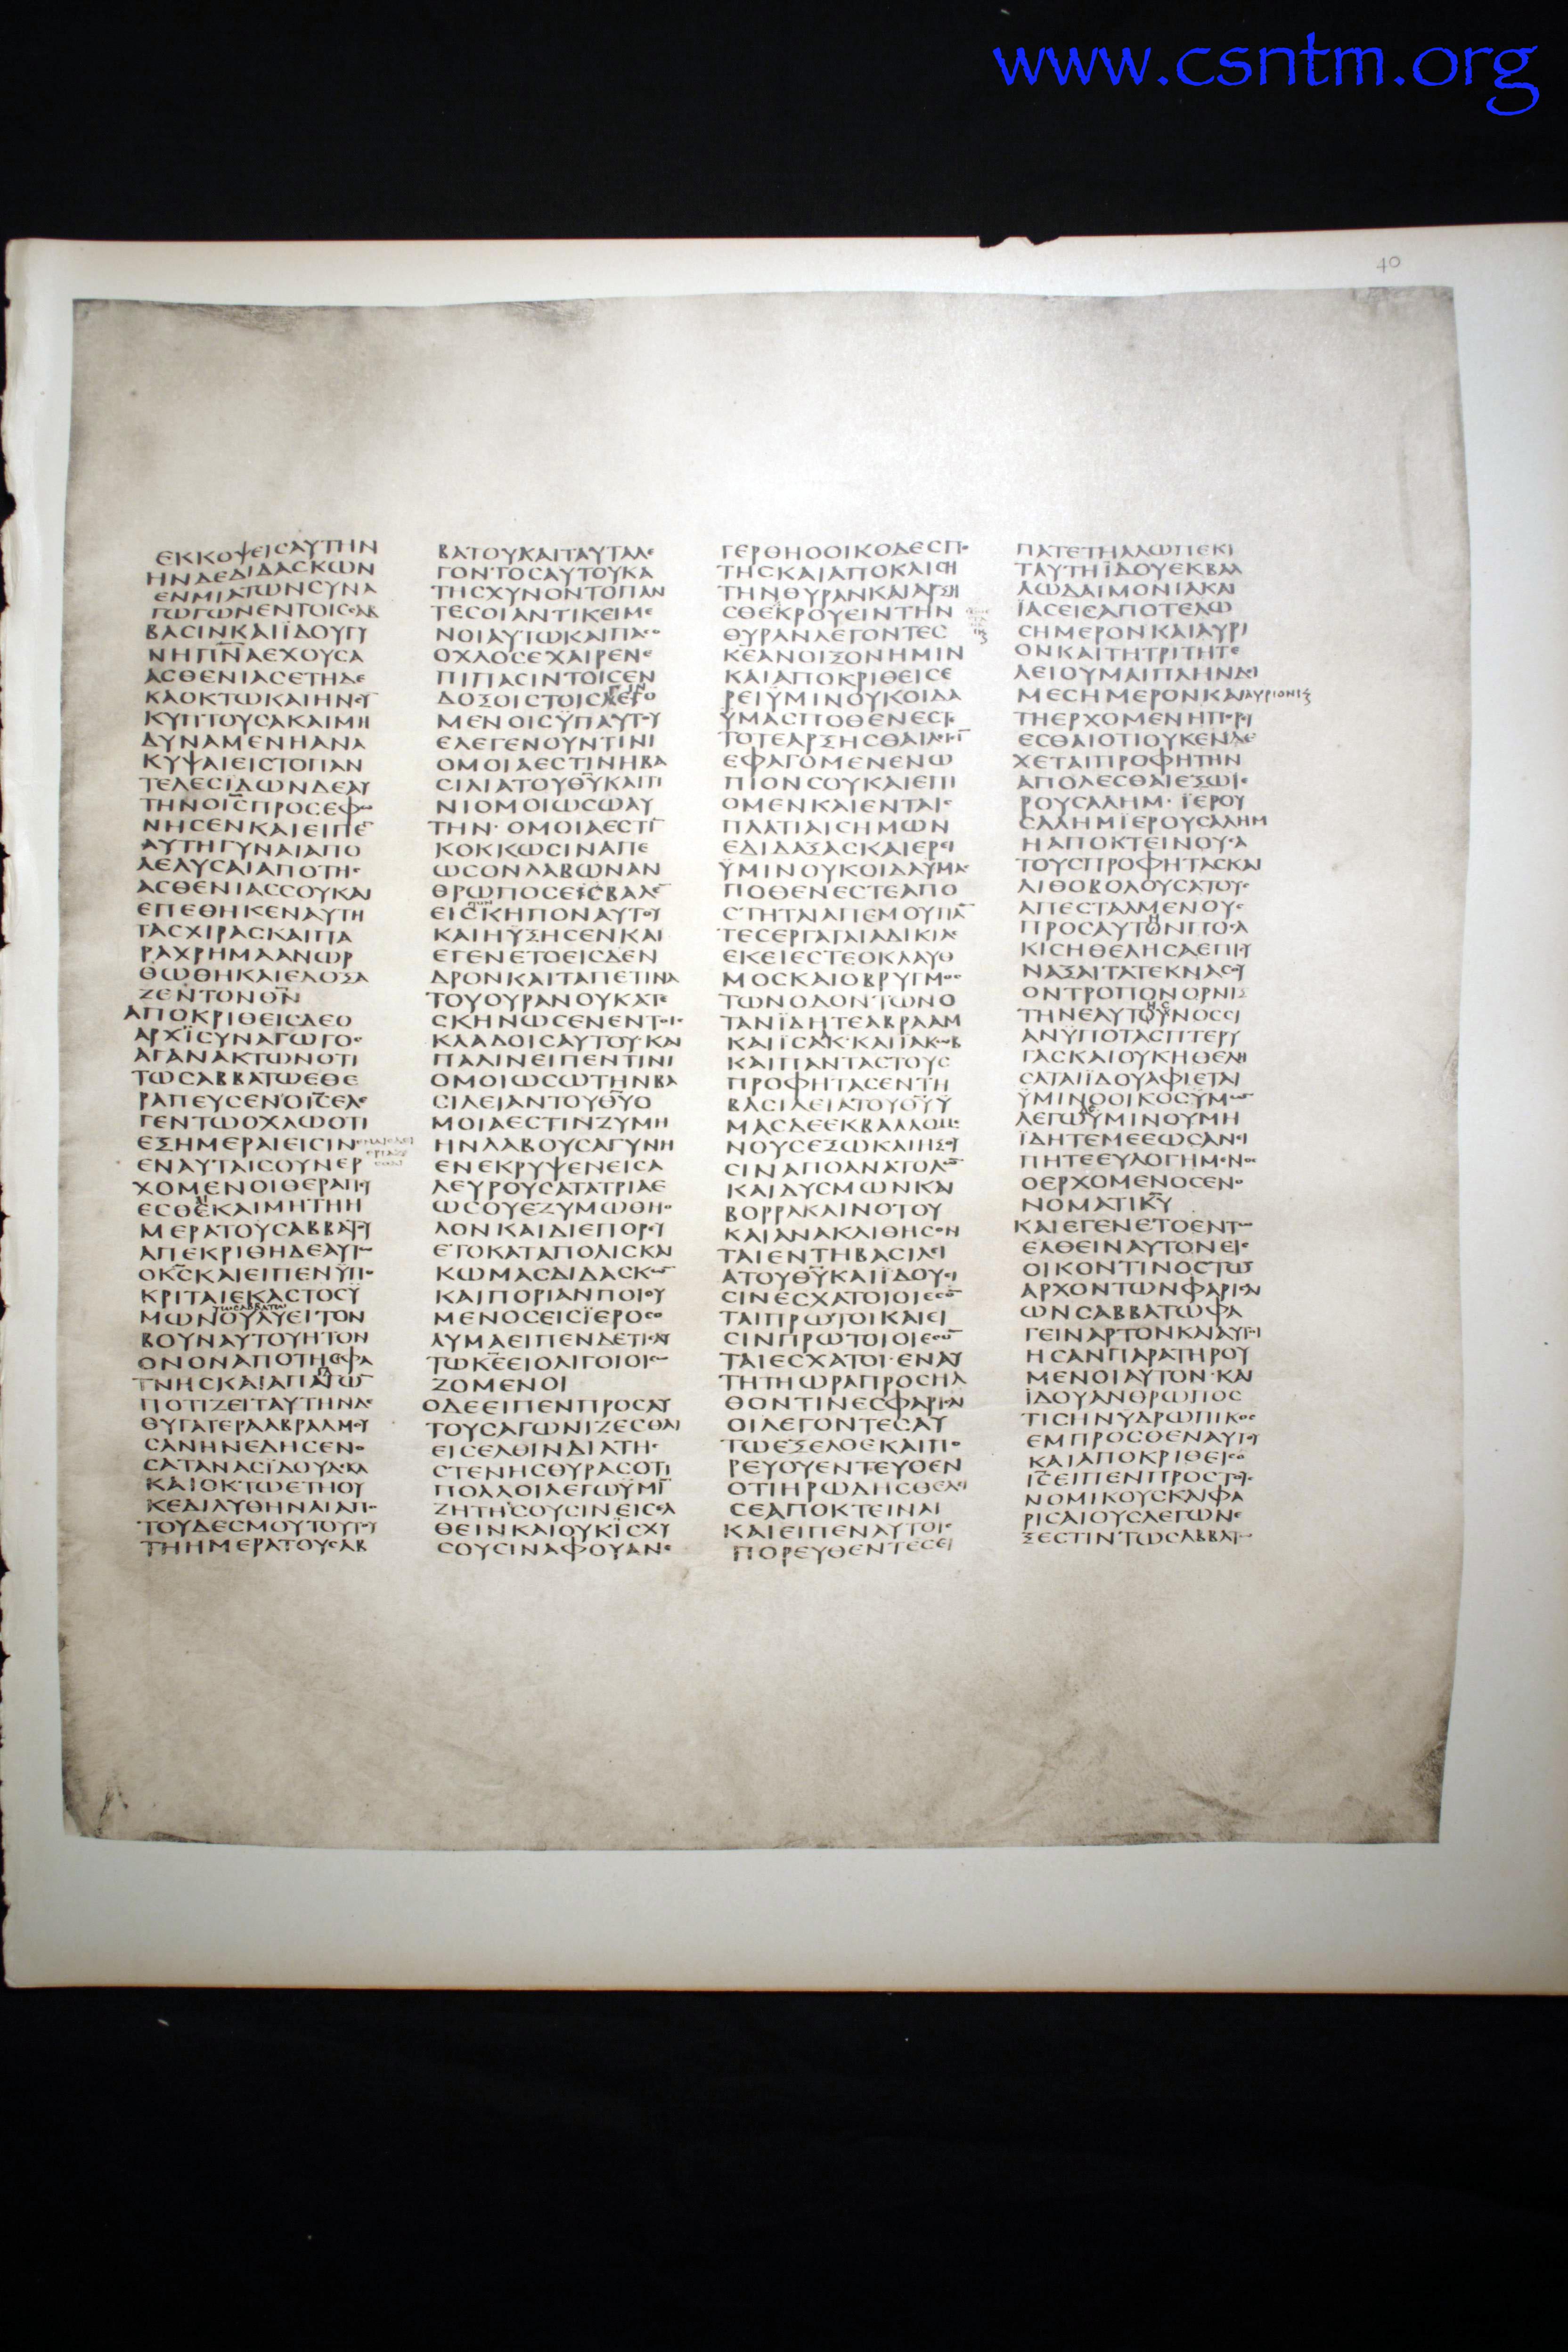 www.csntm.org
40
ΕΚΚΟΨΕΙCΑΥΤΗΝ
ΗΝΔΕΔΙΔΑCΚΩΝ
ΕΝΜΙΑΤΩΝCΥΝΑ
ΓΩΓΩΝΕΝΤΟΙCCΑΒ
ΒΑCΙΝΚΑΙΪΔΟΥΓΥ
ΝΗΠΝ̅ΑΕΧΟΥCΑ
ΑCΘΕΝΙΑCΕΤΗΔΕ
ΚΑΟΚΤΩΚΑΙΗΝCΥ
ΚΥΠΤΟΥCΑΚΑΙΜΗ
ΔΥΝΑΜΕΝΗΑΝΑ
ΚΥΨΑΙΕΙCΤΟΠΑΝ
ΤΕΛΕCΪΔΩΝΔΕΑΥ
ΤΗΝΟΙ̅C̅ΠΡΟCΕΦΩ
ΝΗCΕΝΚΑΙΕΙΠΕ̅
ΑΥΤΗΓΥΝΑΙΑΠΟ
ΛΕΛΥCΑΙΑΠΟΤΗC
ΑCΘΕΝΙΑCCΟΥΚΑΙ
ΕΠΕΘΗΚΕΝΑΥΤΗ
ΤΑCΧΙΡΑCΚΑΙΠΑ
ΡΑΧΡΗΜΑΑΝΩΡ
ΘΩΘΗΚΑΙΕΔΟΞΑ
ΖΕΝΤΟΝΘ̅Ν̅
ΑΠΟΚΡΙΘΕΙCΔΕΟ
ΑΡΧΪCΥΝΑΓΩΓΟC
ΑΓΑΝΑΚΤΩΝΟΤΙ
ΤΩCΑΒΒΑΤΩΕΘΕ
ΡΑΠΕΥCΕΝΟΙ̅C̅ΕΛΕ
ΓΕΝΤΩΟΧΛΩΟΤΙ
ΕΞΗΜΕΡΑΙΕΙCΙΝ
ΕΝΑΥΤΑΙCΟΥΝΕΡ
ΧΟΜΕΝΟΙΘΕΡΑΠΕΥ
ΕCΘΕΚΑΙΜΗΤΗΗ
ΜΕΡΑΤΟΥCΑΒΒΑΤΟΥ
ΑΠΕΚΡΙΘΗΔΕΑΥΤΩ
ΟΚ̅C̅ΚΑΙΕΙΠΕΝΫΠΟ
ΚΡΙΤΑΙΕΚΑCΤΟCΫ
ΤΩCΑΒΒΑΤΩ
ΜΩΝΟΥΛΥΕΙΤΟΝ
ΒΟΥΝΑΥΤΟΥΗΤΟΝ
ΟΝΟΝΑΠΟΤΗCΦΑ
ΤΝΗCΚΑΙΑΠΑΓΩ̅
ΠΟΤΙΖΕΙΤΑΥΤΗΝΔΕ
ΘΥΓΑΤΕΡΑΑΒΡΑΑΜΟΥ
CΑΝΗΝΕΔΗCΕΝΟ
CΑΤΑΝΑCΪΔΟΥΔΕΚΑ
ΚΑΙΟΚΤΩΕΤΗΟΥ
ΚΕΔΙΛΥΘΗΝΑΙΑΠΟ
ΤΟΥΔΕCΜΟΥΤΟΥΤΟΥ
ΤΗΗΜΕΡΑΤΟΥCΑΒ
ΒΑΤΟΥΚΑΙΤΑΥΤΑΛΕ
ΓΟΝΤΟCΑΥΤΟΥΚΑ
ΤΗCΧΥΝΟΝΤΟΠΑΝ
ΤΕCΟΙΑΝΤΙΚΕΙΜΕ
ΝΟΙΑΥΤΩΚΑΙΠΑCΟ
ΟΧΛΟCΕΧΑΙΡΕΝΕ
ΠΙΠΑCΙΝΤΟΙCΕΝ
ΔΟΞΟΙCΤΟΙCΛΕΓΟ
ΜΕΝΟΙCΫΠΑΥΤΟΥ
ΕΛΕΓΕΝΟΥΝΤΙΝΙ
ΟΜΟΙΑΕCΤΙΝΗΒΑ
CΙΛΙΑΤΟΥΘ̅Υ̅ΚΑΙΤΙ
ΝΙΟΜΟΙΩCΩΑΥ
ΤΗΝ·ΟΜΟΙΑΕCΤΙ̅
ΚΟΚΚΩCΙΝΑΠΕ
ΩCΟΝΛΑΒΩΝΑΝ
ΘΡΩΠΟCΕΙCΒΑΛΕ̅
ΕΙCΚΗΠΟΝΑΥΤΟΥ
ΚΑΙΗΫΞΗCΕΝΚΑΙ
ΕΓΕΝΕΤΟΕΙCΔΕΝ
ΔΡΟΝΚΑΙΤΑΠΕΤΙΝΑ
ΤΟΥΟΥΡΑΝΟΥΚΑΤΕ
CΚΗΝΩCΕΝΕΝΤΟΙC
ΚΛΑΔΟΙCΑΥΤΟΥ·ΚΑΙ
ΠΑΛΙΝΕΙΠΕΝΤΙΝΙ
ΟΜΟΙΩCΩΤΗΝΒΑ
CΙΛΕΙΑΝΤΟΥΘ̅Υ̅Ο
ΜΟΙΑΕCΤΙΝΖΥΜΗ
ΗΝΛΑΒΟΥCΑΓΥΝΗ
ΕΝΕΚΡΥΨΕΝΕΙCΑ
ΛΕΥΡΟΥCΑΤΑΤΡΙΑΕ
ΩCΟΥΕΖΥΜΩΘΗΟ
ΛΟΝΚΑΙΔΙΕΠΟΡΕΥ
ΕΤΟΚΑΤΑΠΟΛΙCΚΑΙ
ΚΩΜΑCΔΙΔΑCΚΩ̅
ΚΑΙΠΟΡΙΑΝΠΟΙΟΥ
ΜΕΝΟCΕΙCΪΕΡΟCΟ
ΛΥΜΑΕΙΠΕΝΔΕΤΙCΑΥ
ΤΩΚ̅Ε̅ΕΙΟΛΙΓΟΙΟΙCΩ
ΖΟΜΕΝΟΙ
ΟΔΕΕΙΠΕΝΠΡΟCΑΥ
ΤΟΥCΑΓΩΝΙΖΕCΘΑΙ
ΕΙCΕΛΘΙΝΔΙΑΤΗC
CΤΕΝΗCΘΥΡΑCΟΤΙ
ΠΟΛΛΟΙΛΕΓΩΫΜΙ̅
ΖΗΤΗCΟΥCΙΝΕΙCΕΛ
ΘΕΙΝΚΑΙΟΥΚΪCΧΥ
CΟΥCΙΝΑΦΟΥΑΝΕ
ΓΕΡΘΗΟΟΙΚΟΔΕCΠΟ
ΤΗCΚΑΙΑΠΟΚΛΙCΗ
ΤΗΝΘΥΡΑΝΚΑΙΑΡΞΗ
CΘΕΚΡΟΥΕΙΝΤΗΝ
ΘΥΡΑΝΛΕΓΟΝΤΕC
Κ̅Ε̅ΑΝΟΙΞΟΝΗΜΙΝ
ΚΑΙΑΠΟΚΡΙΘΕΙCΕ
ΡΕΙΫΜΙΝΟΥΚΟΙΔΑ
ΫΜΑCΠΟΘΕΝΕCΤΕ
ΤΟΤΕΑΡΞΗCΘΑΙΛΕΓΙ̅
ΕΦΑΓΟΜΕΝΕΝΩ
ΠΙΟΝCΟΥΚΑΙΕΠΙ
ΟΜΕΝΚΑΙΕΝΤΑΙC
ΠΛΑΤΙΑΙCΗΜΩΝ
ΕΔΙΔΑΞΑCΚΑΙΕΡΕΙ
ΫΜΙΝΟΥΚΟΙΔΑΫΜΑC
ΠΟΘΕΝΕCΤΕΑΠΟ
CΤΗΤΑΙΑΠΕΜΟΥΠΑ̅
ΤΕCΕΡΓΑΤΑΙΑΔΙΚΙΑC
ΕΚΕΙΕCΤΕΟΚΛΑΥΘ
ΜΟCΚΑΙΟΒΡΥΓΜΟC
ΤΩΝΟΔΟΝΤΩΝΟ
ΤΑΝΪΔΗΤΕΑΒΡΑΑΜ
ΚΑΙΪCΑΚ·ΚΑΙΪΑΚΩΒ
ΚΑΙΠΑΝΤΑCΤΟΥC
ΠΡΟΦΗΤΑCΕΝΤΗ
ΒΑCΙΛΕΙΑΤΟΥΘ̅Υ̅Ϋ
ΜΑCΔΕΕΚΒΑΛΛΟΜΕ
ΝΟΥCΕΞΩΚΑΙΗΞΟΥ
CΙΝΑΠΟΑΝΑΤΟΛΩ̅
ΚΑΙΔΥCΜΩΝΚΑΙ
ΒΟΡΡΑΚΑΙΝΟΤΟΥ
ΚΑΙΑΝΑΚΛΙΘΗCΟΝ
ΤΑΙΕΝΤΗΒΑCΙΛΕΙ
ΑΤΟΥΘ̅Υ̅ΚΑΙΪΔΟΥΕΙ
CΙΝΕCΧΑΤΟΙΟΙΕCΟ̅
ΤΑΙΠΡΩΤΟΙΚΑΙΕΙ
CΙΝΠΡΩΤΟΙΟΙΕCΟ̅
ΤΑΙΕCΧΑΤΟΙ·ΕΝΑΥ
ΤΗΤΗΩΡΑΠΡΟCΗΛ
ΘΟΝΤΙΝΕCΦΑΡΙCΑΙ
ΟΙΛΕΓΟΝΤΕCΑΥ
ΤΩΕΞΕΛΘΕΚΑΙΠΟ
ΡΕΥΟΥΕΝΤΕΥΘΕΝ
ΟΤΙΗΡΩΔΗCΘΕΛΕΙ
CΕΑΠΟΚΤΕΙΝΑΙ
ΚΑΙΕΙΠΕΝΑΥΤΟΙC
ΠΟΡΕΥΘΕΝΤΕCΕΙ
ΠΑΤΕΤΗΑΛΩΠΕΚΙ
ΤΑΥΤΗΪΔΟΥΕΚΒΑΛ
ΛΩΔΑΙΜΟΝΙΑΚΑΙ
ΪΑCΕΙCΑΠΟΤΕΛΩ
CΗΜΕΡΟΝΚΑΙΑΥΡΙ
ΟΝΚΑΙΤΗΤΡΙΤΗΤΕ
ΛΕΙΟΥΜΑΙΠΛΗΝΔΕΙ
ΜΕCΗΜΕΡΟΝΚΑΙΑΥΡΙΟΝΙϚ
ΤΗΕΡΧΟΜΕΝΗΠΟΡΕΥ
ΕCΘΑΙΟΤΙΟΥΚΕΝΔΕ
ΧΕΤΑΙΠΡΟΦΗΤΗΝ
ΑΠΟΛΕCΘΑΙΕΞΩΙΕ
ΡΟΥCΑΛΗΜ·ΪΕΡΟΥ
CΑΛΗΜΪΕΡΟΥCΑΛΗΜ
ΗΑΠΟΚΤΕΙΝΟΥCΑ
ΤΟΥCΠΡΟΦΗΤΑCΚΑΙ
ΛΙΘΟΒΟΛΟΥCΑΤΟΥC
ΑΠΕCΤΑΛΜΕΝΟΥC
ΠΡΟCΑΥΤΟΝΠΟCΑ
ΚΙCΗΘΕΛΗCΑΕΠΙCΥ
ΝΑΞΑΙΤΑΤΕΚΝΑCΟΥ
ΟΝΤΡΟΠΟΝΟΡΝΙΞ
ΤΗΝΕΑΥΤΟΥΝΟCCΙ
ΑΝΫΠΟΤΑCΠΤΕΡΥ
ΓΑCΚΑΙΟΥΚΗΘΕΛΗ
CΑΤΑΙΪΔΟΥΑΦΙΕΤΑΙ
ΫΜΙΝΟΟΙΚΟCΫΜΩ
ΛΕΓΩΫΜΙΝΟΥΜΗ
ΪΔΗΤΕΜΕΕΩCΑΝΕΙ
ΠΗΤΕΕΥΛΟΓΗΜΕΝΟC
ΟΕΡΧΟΜΕΝΟCΕΝΟ
ΝΟΜΑΤΙΚ̅Υ̅
ΚΑΙΕΓΕΝΕΤΟΕΝΤΩ
ΕΛΘΕΙΝΑΥΤΟΝΕΙC
ΟΙΚΟΝΤΙΝΟCΤΩ̅
ΑΡΧΟΝΤΩΝΦΑΡΙCΑΙ
ΩΝCΑΒΒΑΤΩΦΑ
ΓΕΙΝΑΡΤΟΝΚΑΙΑΥΤΟΙ
ΗCΑΝΠΑΡΑΤΗΡΟΥ
ΜΕΝΟΙΑΥΤΟΝ·ΚΑΙ
ΪΔΟΥΑΝΘΡΩΠΟC
ΤΙCΗΝΥΔΡΩΠΙΚΟC
ΕΜΠΡΟCΘΕΝΑΥΤΟΥ
ΚΑΙΑΠΟΚΡΙΘΕΙCΟ
Ι̅C̅ΕΙΠΕΝΠΡΟCΤΟΥC
ΝΟΜΙΚΟΥCΚΑΙΦΑ
ΡΙCΑΙΟΥCΛΕΓΩΝΕ
ΞΕCΤΙΝΤΩCΑΒΒΑΤΩ